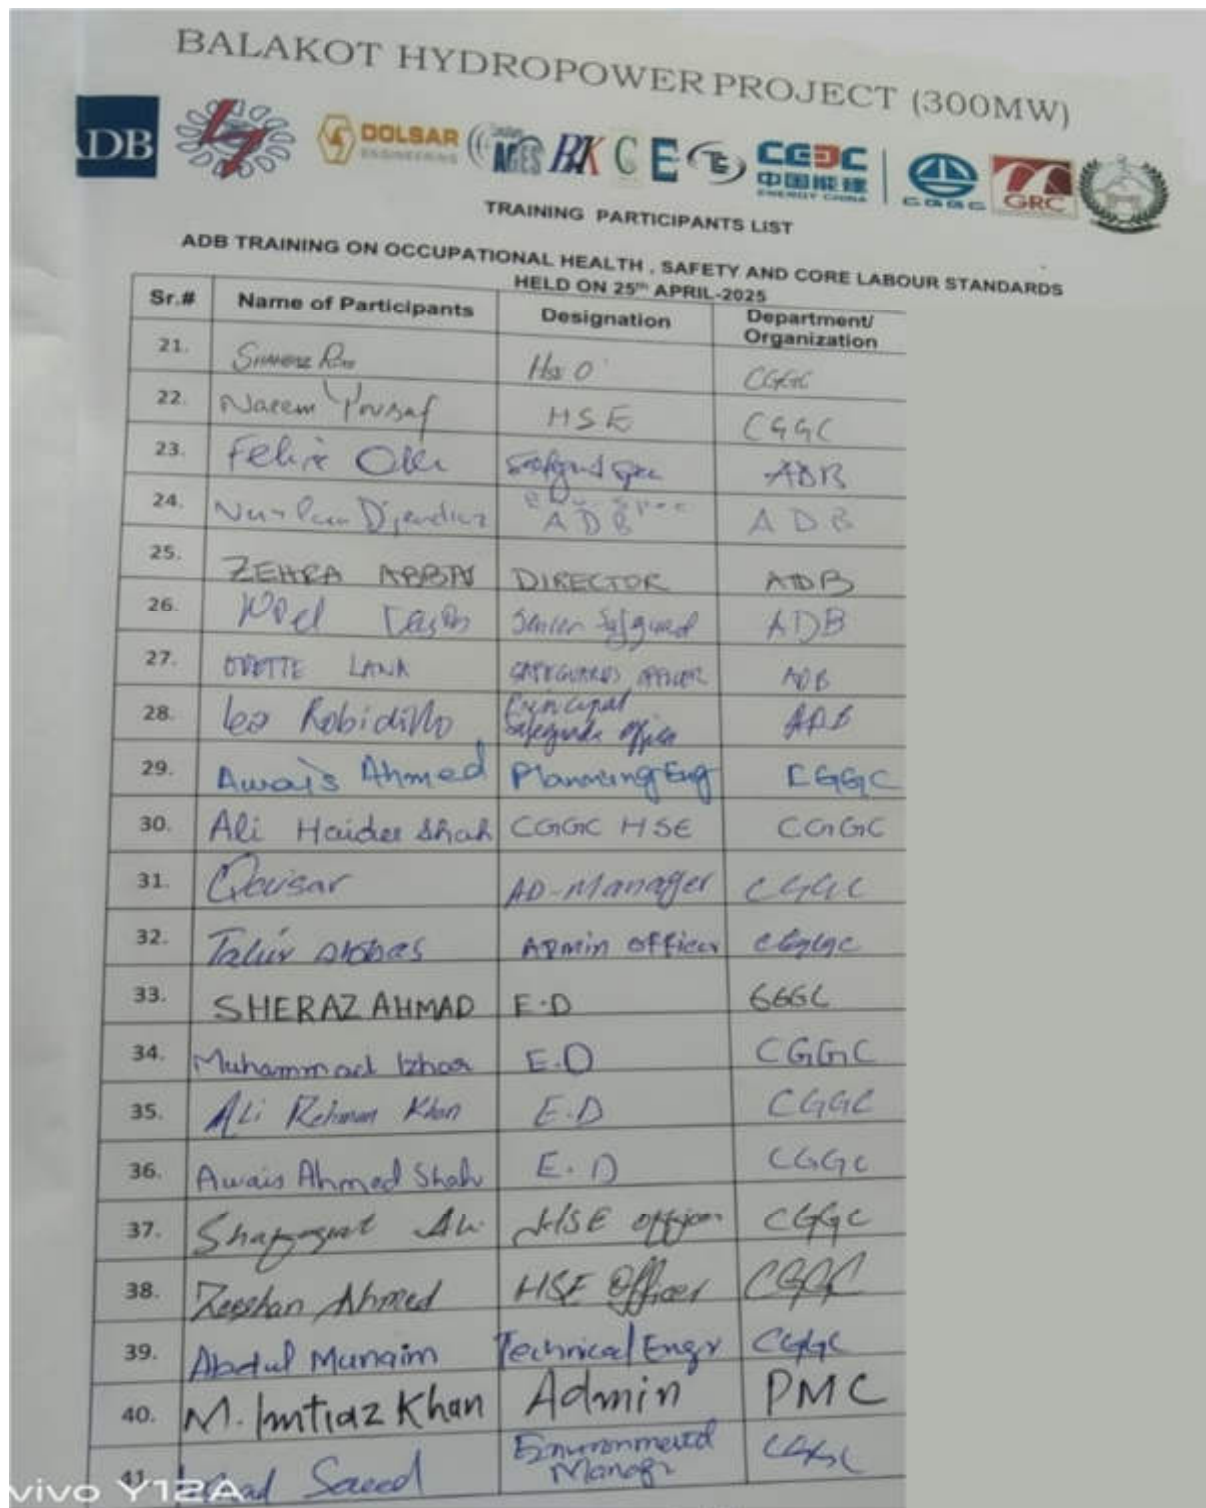 BALAKOT HYDROPOWER PROJECT (300MW)
ADB DOLSAR ENGINEERING AGES BAK C E TE CEEC 中国能建 ENERGY CHINA CGGC GRC
TRAINING PARTICIPANTS LIST
ADB TRAINING ON OCCUPATIONAL HEALTH , SAFETY AND CORE LABOUR STANDARDS
HELD ON 25th APRIL-2025
Sr.# Name of Participants Designation Department/ Organization
21. CGGC
22. Naeem Yousaf HSE CGGC
23. Felix ADB
24. ADB ADB
25. ZEHRA ABBAS DIRECTOR ADB
26. Senior Safguard ADB
27. ODETTE LANA SAFEGUARDS OFFICER ADB
28. Robidillo Principal Safeguards Officer ADB
29. Awais Ahmed Planning Eng CGGC
30. Ali Haider Shah CGGC HSE CGGC
31. Qaisar AD-Manager CGGC
32. Tahir Abbas Admin officer CGGC
33. SHERAZ AHMAD E.D GGGC
34. Muhammad Izhar E.D CGGC
35. Ali Rehman Khan E.D CGGC
36. Awais Ahmed Shah E.D CGGC
37. HSE officer CGGC
38. Zeeshan Ahmed HSE Officer CGGC
39. Abdul Munaim Technical Engr CGGC
40. M. Imtiaz Khan Admin PMC
41. Saeed Environmental Manager CGGC
vivo Y12A